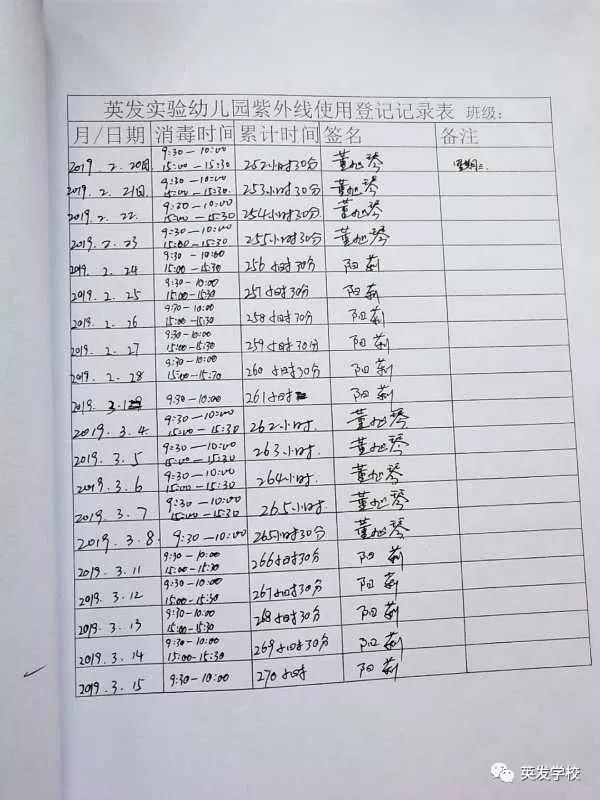 英发实验幼儿园紫外线使用登记记录表 班级:
月/日期 消毒时间 累计时间 签名 备注
2019.2.20日 9:30-10:00 15:00-15:30 252小时30分 董旭琴 星期三
2019.2.21日 9:30-10:00 15:00-15:30 253小时30分 董旭琴
2019.2.22. 9:30-10:00 15:00-15:30 254小时30分 董旭琴
2019.2.23 9:30-10:00 15:00-15:30 255小时30分 董旭琴
2019.2.24 9:30-10:00 15:00-15:30 256小时30分 阳莉
2019.2.25 9:30-10:00 15:00-15:30 257小时30分 阳莉
2019.2.26 9:30-10:00 15:00-15:30 258小时30分 阳莉
2019.2.27 9:30-10:00 15:00-15:30 259小时30分 阳莉
2019.2.28 9:30-10:00 15:00-15:30 260小时30分 阳莉
2019.3.1 9:30-10:00 261小时 阳莉
2019.3.4 9:30-10:00 15:00-15:30 262小时. 董旭琴
2019.3.5 9:30-10:00 15:00-15:30 263小时. 董旭琴
2019.3.6 9:30-10:00 15:00-15:30 264小时. 董旭琴
2019.3.7 9:30-10:00 15:00-15:30 265小时. 董旭琴
2019.3.8. 9:30-10:00 265小时30分 董旭琴
2019.3.11 9:30-10:00 15:00-15:30 266小时30分 阳莉
2019.3.12 9:30-10:00 15:00-15:30 267小时30分 阳莉
2019.3.13 9:30-10:00 15:00-15:30 268小时30分 阳莉
2019.3.14 9:30-10:00 15:00-15:30 269小时30分 阳莉
2019.3.15 9:30-10:00 270小时 阳莉
英发学校